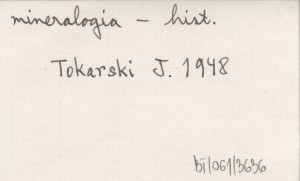 mineralogia - hist.
Tokarski J. 1948
BI/061/3636